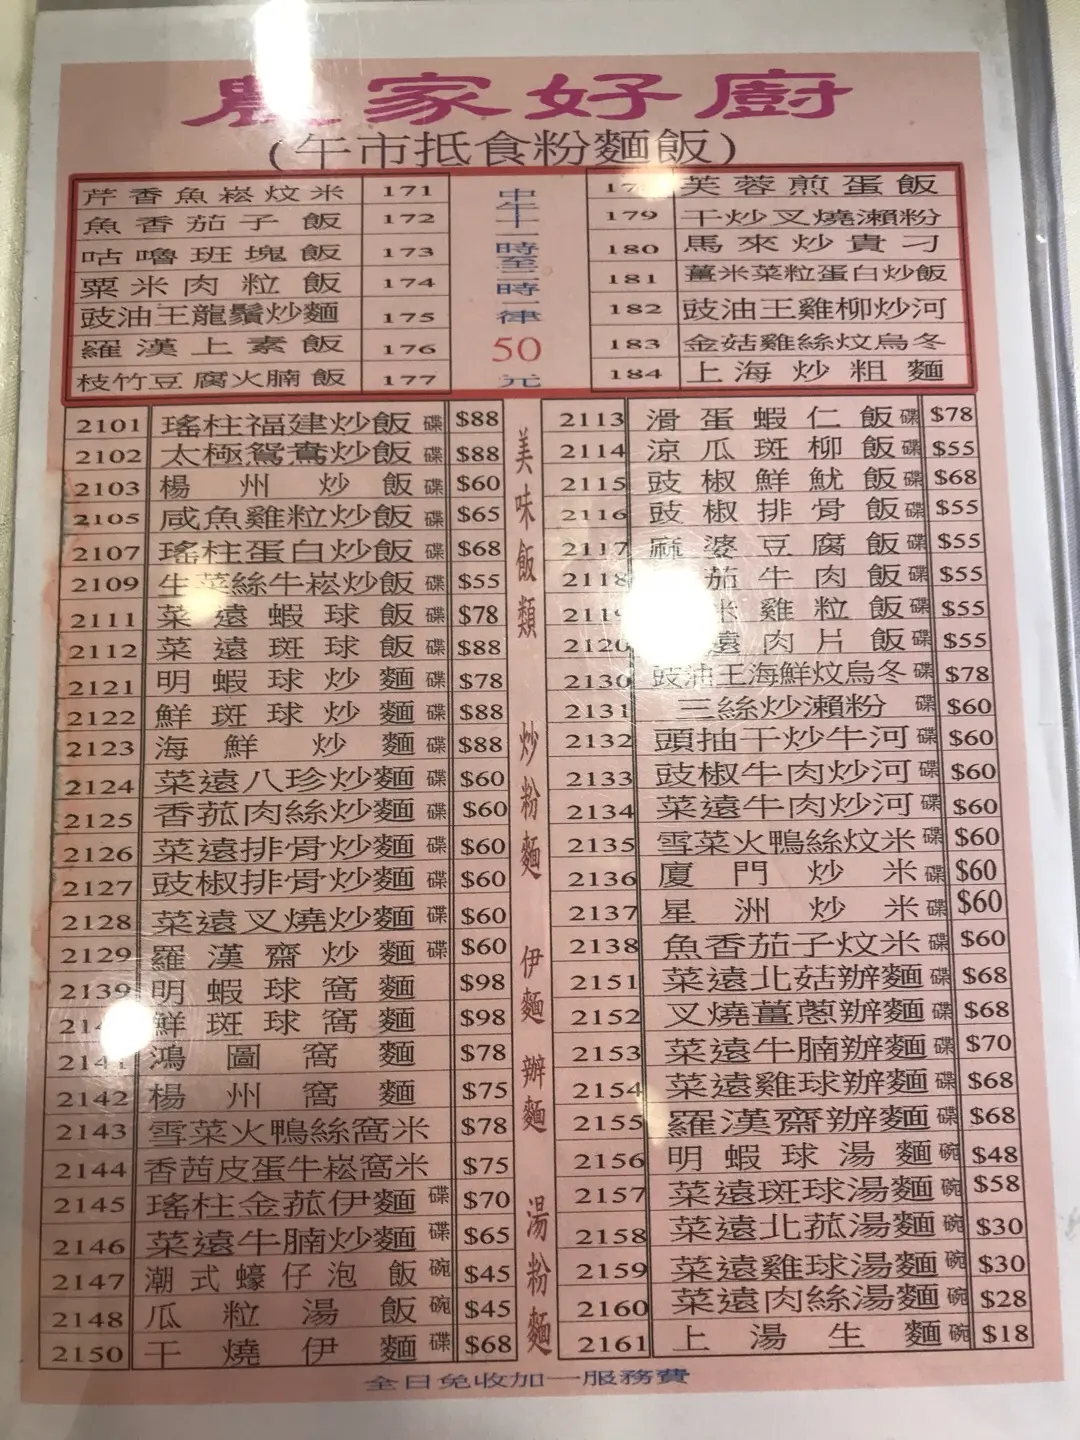 農家好廚
(午市抵食粉麵飯)
芹香魚崧炆米 171
魚香茄子飯 172
咕嚕班塊飯 173
粟米肉粒飯 174
豉油王龍鬚炒麵 175
羅漢上素飯 176
枝竹豆腐火腩飯 177
中午十一時至二時一律
50
元
芙蓉煎蛋飯
179 干炒叉燒瀨粉
180 馬來炒貴刁
181 薑米菜粒蛋白炒飯
182 豉油王雞柳炒河
183 金菇雞絲炆烏冬
184 上海炒粗麵
2101 瑤柱福建炒飯 碟 $88
2102 太極鴛鴦炒飯 碟 $88
2103 楊州炒飯 碟 $60
2105 咸魚雞粒炒飯 碟 $65
2107 瑤柱蛋白炒飯 碟 $68
2109 生菜絲牛崧炒飯 碟 $55
2111 菜遠蝦球飯 碟 $78
2112 菜遠斑球飯 碟 $88
2121 明蝦球炒麵 碟 $78
2122 鮮斑球炒麵 碟 $88
2123 海鮮炒麵 碟 $88
2124 菜遠八珍炒麵 碟 $60
2125 香菰肉絲炒麵 碟 $60
2126 菜遠排骨炒麵 碟 $60
2127 豉椒排骨炒麵 碟 $60
2128 菜遠叉燒炒麵 碟 $60
2129 羅漢齋炒麵 碟 $60
2139 明蝦球窩麵 $98
鮮斑球窩麵 $98
2141 鴻圖窩麵 $78
2142 楊州窩麵 $75
2143 雪菜火鴨絲窩米 $78
2144 香茜皮蛋牛崧窩米 $75
2145 瑤柱金菰伊麵 碟 $70
2146 菜遠牛腩炒麵 碟 $65
2147 潮式蠔仔泡飯 碗 $45
2148 瓜粒湯飯 碗 $45
2150 干燒伊麵 碟 $68
美味飯類
炒粉麵
伊麵
辦麵
湯粉麵
2113 滑蛋蝦仁飯 碟 $78
2114 涼瓜斑柳飯 碟 $55
2115 豉椒鮮魷飯 碟 $68
2116 豉椒排骨飯 碟 $55
2117 麻婆豆腐飯 碟 $55
2118 茄牛肉飯 碟 $55
2119 米雞粒飯 碟 $55
2120 遠肉片飯 碟 $55
2130 豉油王海鮮炆烏冬 碟 $78
2131 三絲炒瀨粉 碟 $60
2132 頭抽干炒牛河 碟 $60
2133 豉椒牛肉炒河 碟 $60
2134 菜遠牛肉炒河 碟 $60
2135 雪菜火鴨絲炆米 碟 $60
2136 廈門炒米 碟 $60
2137 星洲炒米 碟 $60
2138 魚香茄子炆米 碟 $60
2151 菜遠北菇辦麵 碟 $68
2152 叉燒薑蔥辦麵 碟 $68
2153 菜遠牛腩辦麵 碟 $70
2154 菜遠雞球辦麵 碟 $68
2155 羅漢齋辦麵 碟 $68
2156 明蝦球湯麵 碗 $48
2157 菜遠斑球湯麵 碗 $58
2158 菜遠北菰湯麵 碗 $30
2159 菜遠雞球湯麵 碗 $30
2160 菜遠肉絲湯麵 碗 $28
2161 上湯生麵 碗 $18
全日免收加一服務費